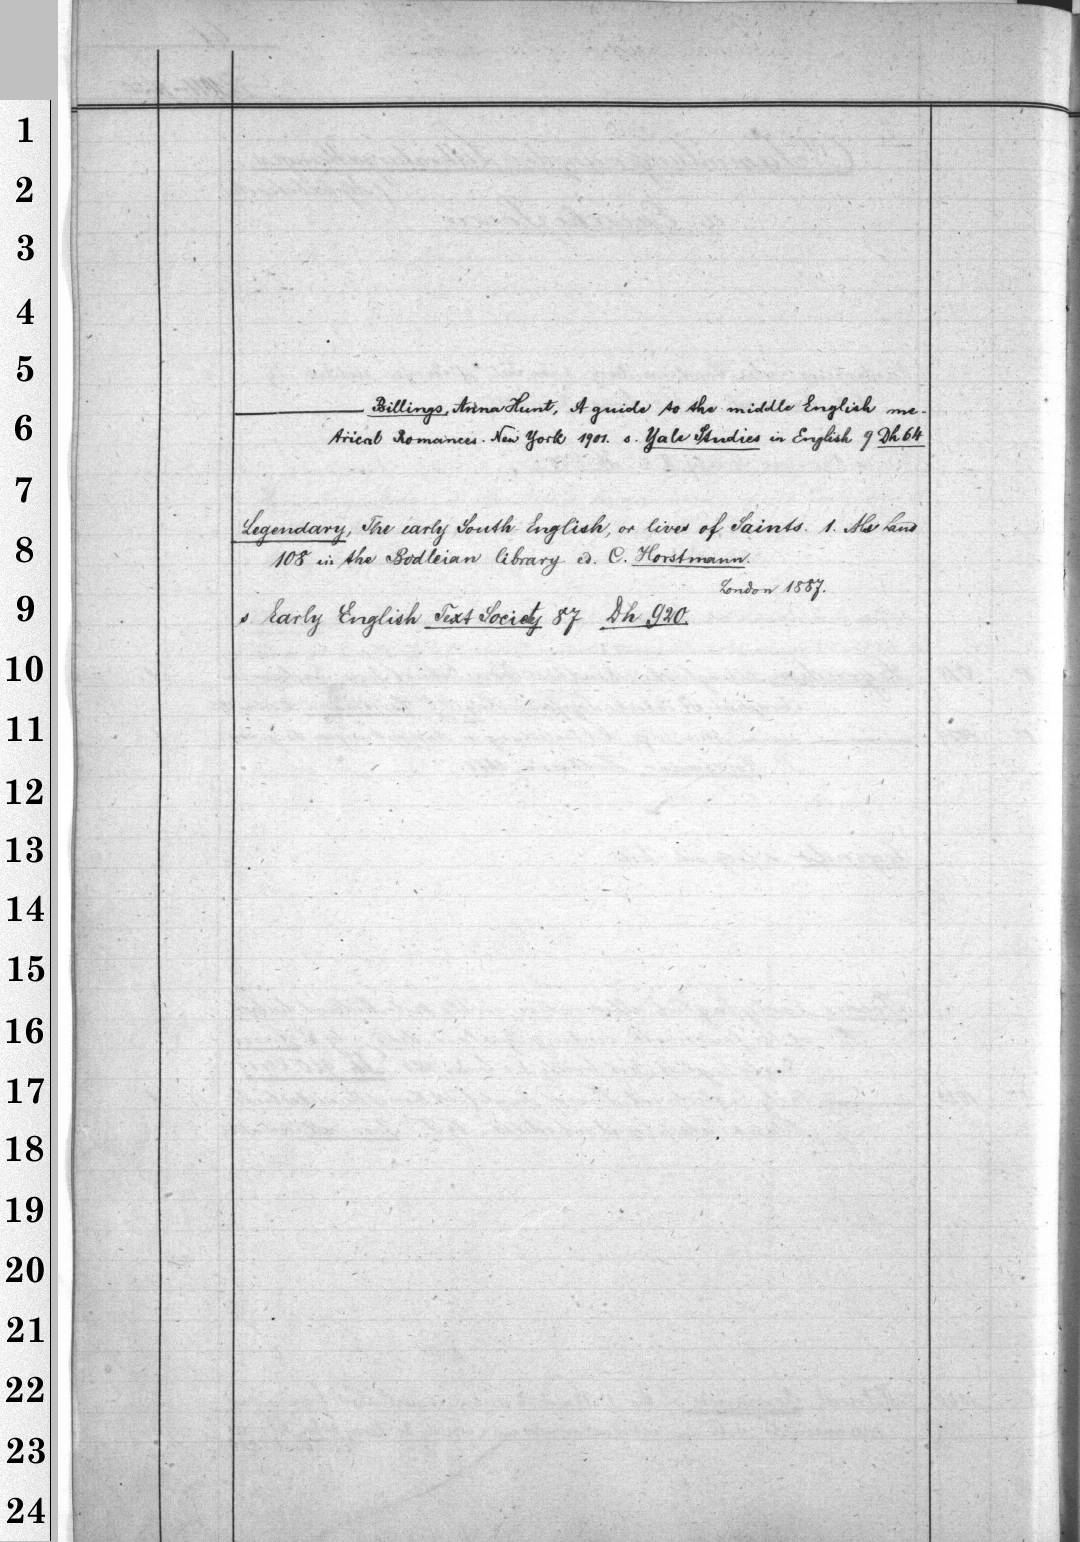 1
2
3
4
5
Billings, Anna Hunt, A guide to the middle English me-
6
trical Romances. New York 1901. s. Yale Studies in English 9 Dh 64
7
Legendary, The early South English, or lives of Saints. 1. Ms Laud
8
108 in the Bodleian library ed. C. Horstmann.
London 1887.
9
s Early English Text Society 87 Dh 920.
10
11
12
13
14
15
16
17
18
19
20
21
22
23
24